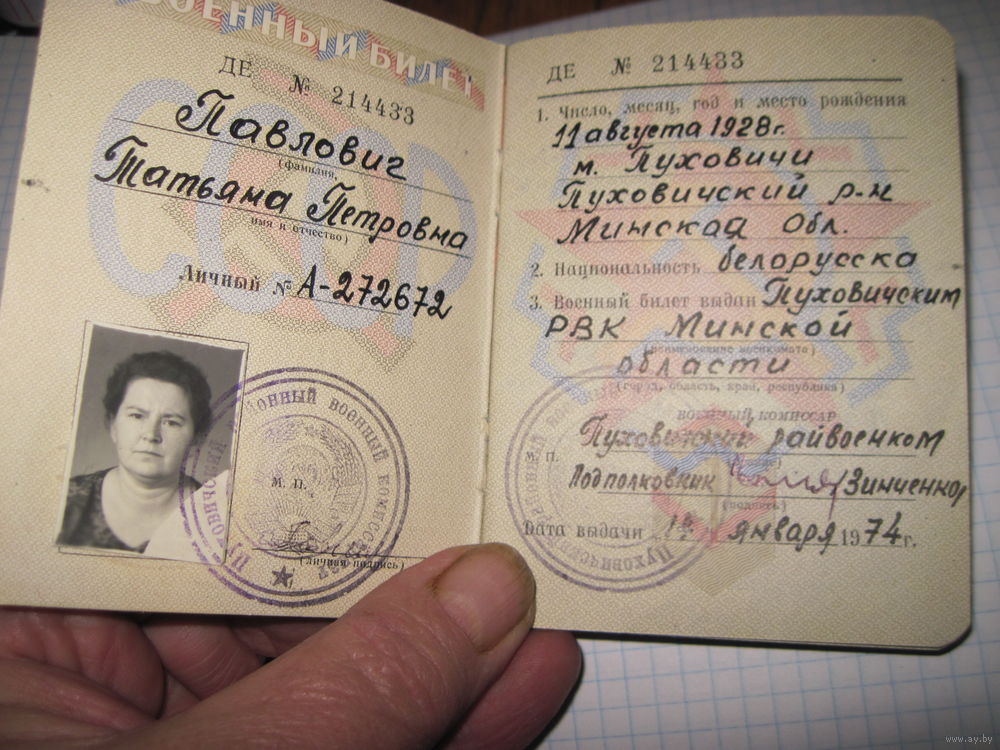 ВОЕННЫЙ БИЛЕТ
ДЕ № 214433
Павлович
(фамилия,
Татьяна Петровна
имя и отчество)
Личный № А-272672
М. П.
(личная подпись)
ДЕ № 214433
1. Число, месяц, год и место рождения
11 августа 1928г.
м. Пуховичи
Пуховичский р-н
Минская Обл.
2. Национальность белорусска
3. Военный билет выдан Пуховичским
РВК Минской
(наименование военкомата)
области
(город, область, край, республика)
ВОЕННЫЙ КОМИССАР
Пуховичский райвоенком
М. П.
Подполковник /Зинченко/
(подпись)
Дата выдачи января 1974 г.
www.ay.by